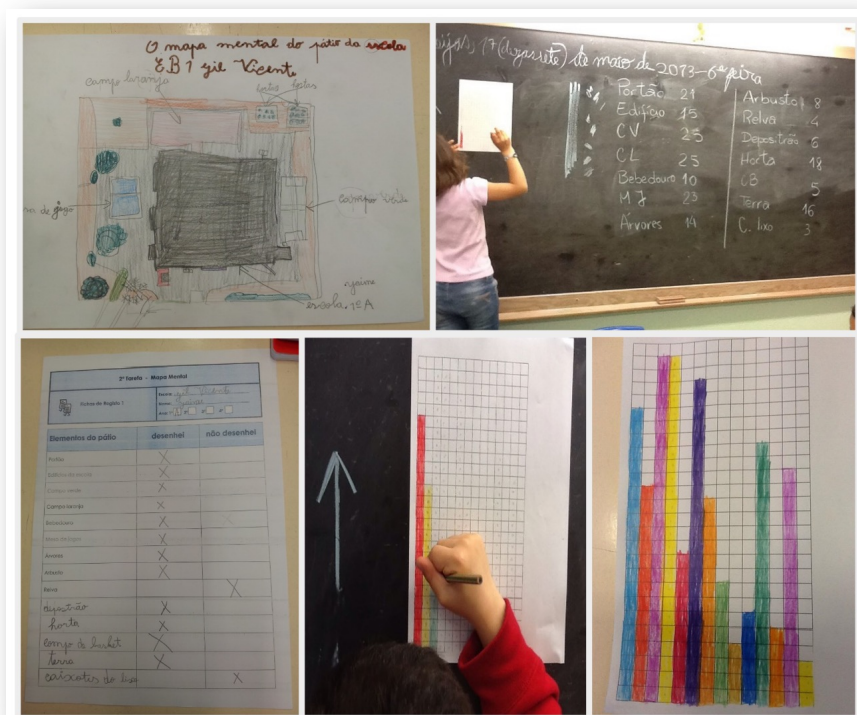 O mapa mental do pátio da escola
EB1 Gil Vicente
campo laranja
hortas
campo verde
de jogo
escola 1ºA
17 (dezassete) de maio de 2013 - 6ª feira
Portão 21
Edifício 15
CV 25
CL 25
Bebedouro 10
MJ 23
Árvores 14
Arbustos 8
Relva 4
Depositrão 6
Horta 18
CB 5
Terra 16
C. lixo 3
2ª Tarefa - Mapa Mental
Fichas de Registo 1
Gil Vicente
Elementos do pátio desenhei não desenhei
Portão X
Edifício da escola X
Campo verde X
Campo laranja X
Bebedouro X
Mesa de jogos X
Árvores X
Arbusto X
Relva X
horta X
campo de basket X
terra X
caixotes do lixo X